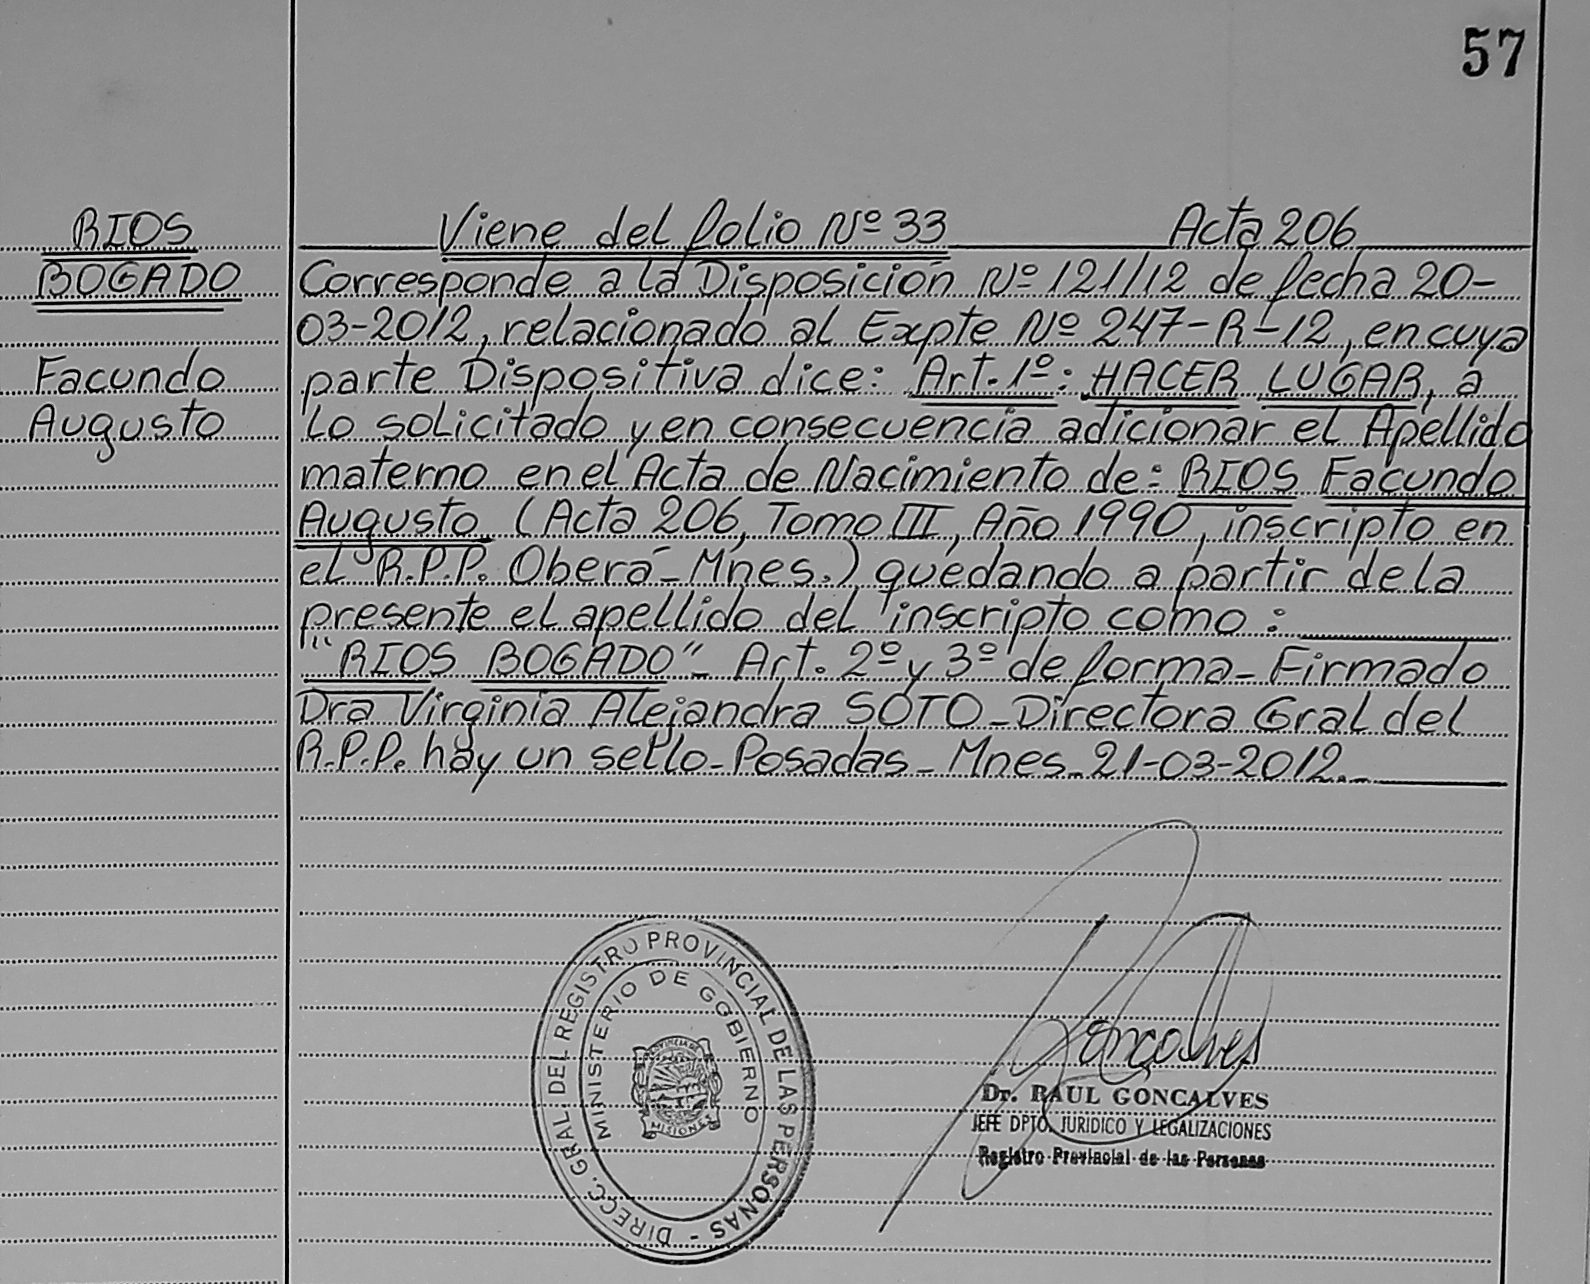 57
RIOS
BOGADO
Facundo
Augusto
Viene del folio Nº 33 Acta 206
Corresponde a la Disposición Nº 121/12 de fecha 20-
03-2012, relacionado al Expte Nº 247-R-12, en cuya
parte Dispositiva dice: Art. 1º: HACER LUGAR, a
lo solicitado y en consecuencia adicionar el Apellido
materno en el Acta de Nacimiento de: RIOS Facundo
Augusto (Acta 206, Tomo III, Año 1990, inscripto en
el R.P.P. Oberá - Mnes.) quedando a partir de la
presente el apellido del inscripto como:
"RIOS BOGADO" - Art. 2º y 3º de forma - Firmado
Dra Virginia Alejandra SOTO - Directora Gral del
R.P.P. hay un sello - Posadas - Mnes - 21-03-2012.
DIRECC. GRAL. DEL REGISTRO PROVINCIAL DE LAS PERSONAS -
MINISTERIO DE GOBIERNO
PROVINCIA DE
MISIONES
Goncalves
Dr. RAUL GONCALVES
JEFE DPTO. JURIDICO Y LEGALIZACIONES
Registro Provincial de las Personas